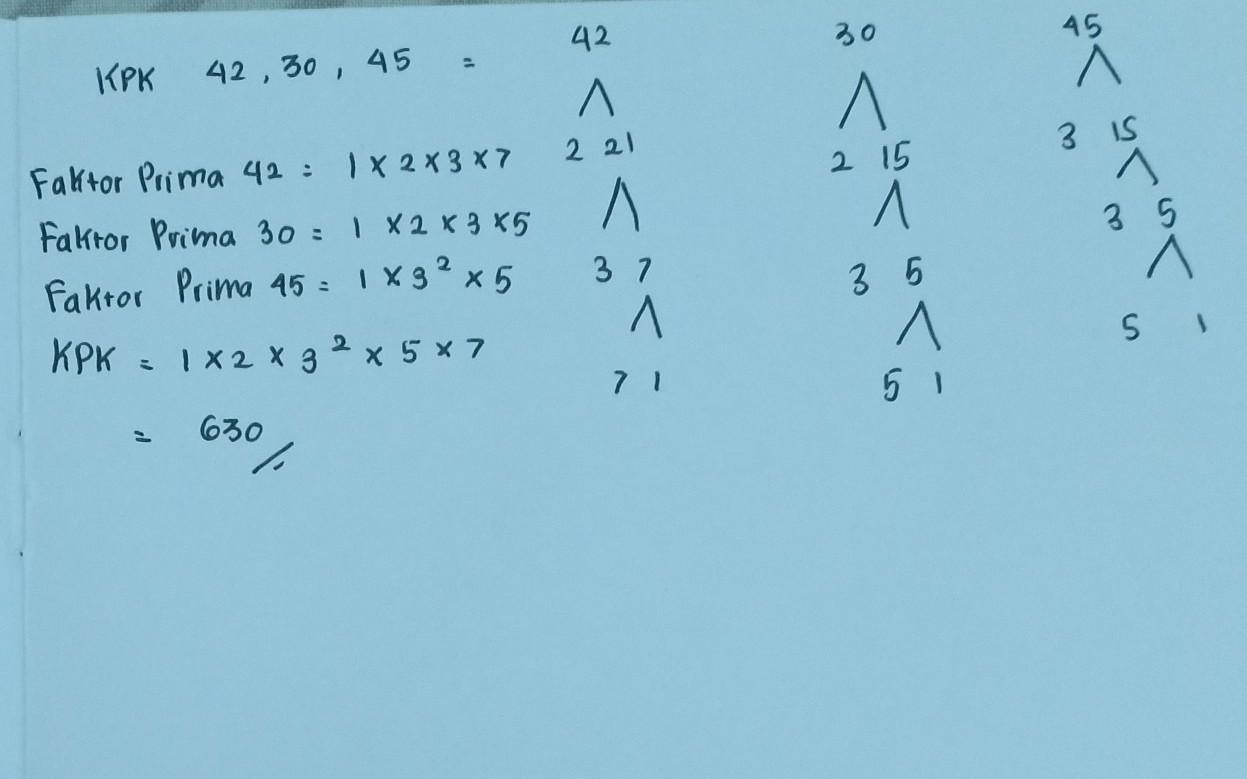 KPK 42, 30, 45 =
Faktor Prima 42 = 1 x 2 x 3 x 7
Faktor Prima 30 = 1 x 2 x 3 x 5
Faktor Prima 45 = 1 x 3² x 5
KPK = 1 x 2 x 3² x 5 x 7
= 630
42
2 21
3 7
7 1
30
2 15
3 5
5 1
45
3 15
3 5
5 1